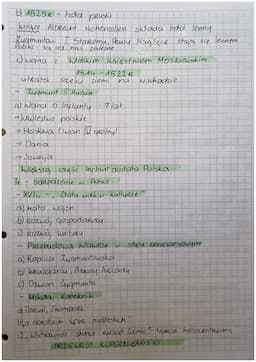 b) 1525 r - hołd pruski
książę Albrecht Hohenzollern składa hołd lenny
Zygmuntowi Staremu, Prusy Książęce stają się lennem
Polski
c) wojna z Wielkim Księstwem Moskiewskim
1514 - 1522 r
utrata części ziemi na wschodzie
- Zygmunt II August
a) Wojna o Inflanty 7 lat
→ Królestwo polskie
→ Moskwa (Iwan IV groźny)
→ Dania
→ Szwecja
Większą część Inflant dostała Polska
- odrodzenie w Polsce
- XVI w - "złoty wiek w kulturze"
a) mało wojen
b) rozwój gospodarczy
c) rozwój kultury
- Przebudowa Wawelu w stylu renesansowym
a) Kaplica Zygmuntowska
b) krużganki, Arkady
c) Dzwon Zygmunta
- Mikołaj Kopernik
a) Toruń, Frombork
b) o obrotach sfer niebieskich"
c) "Wstrzymał słońce, ruszył ziemię" teoria heliocentryczna
PRZEWRÓT KOPERNIKOWSKI